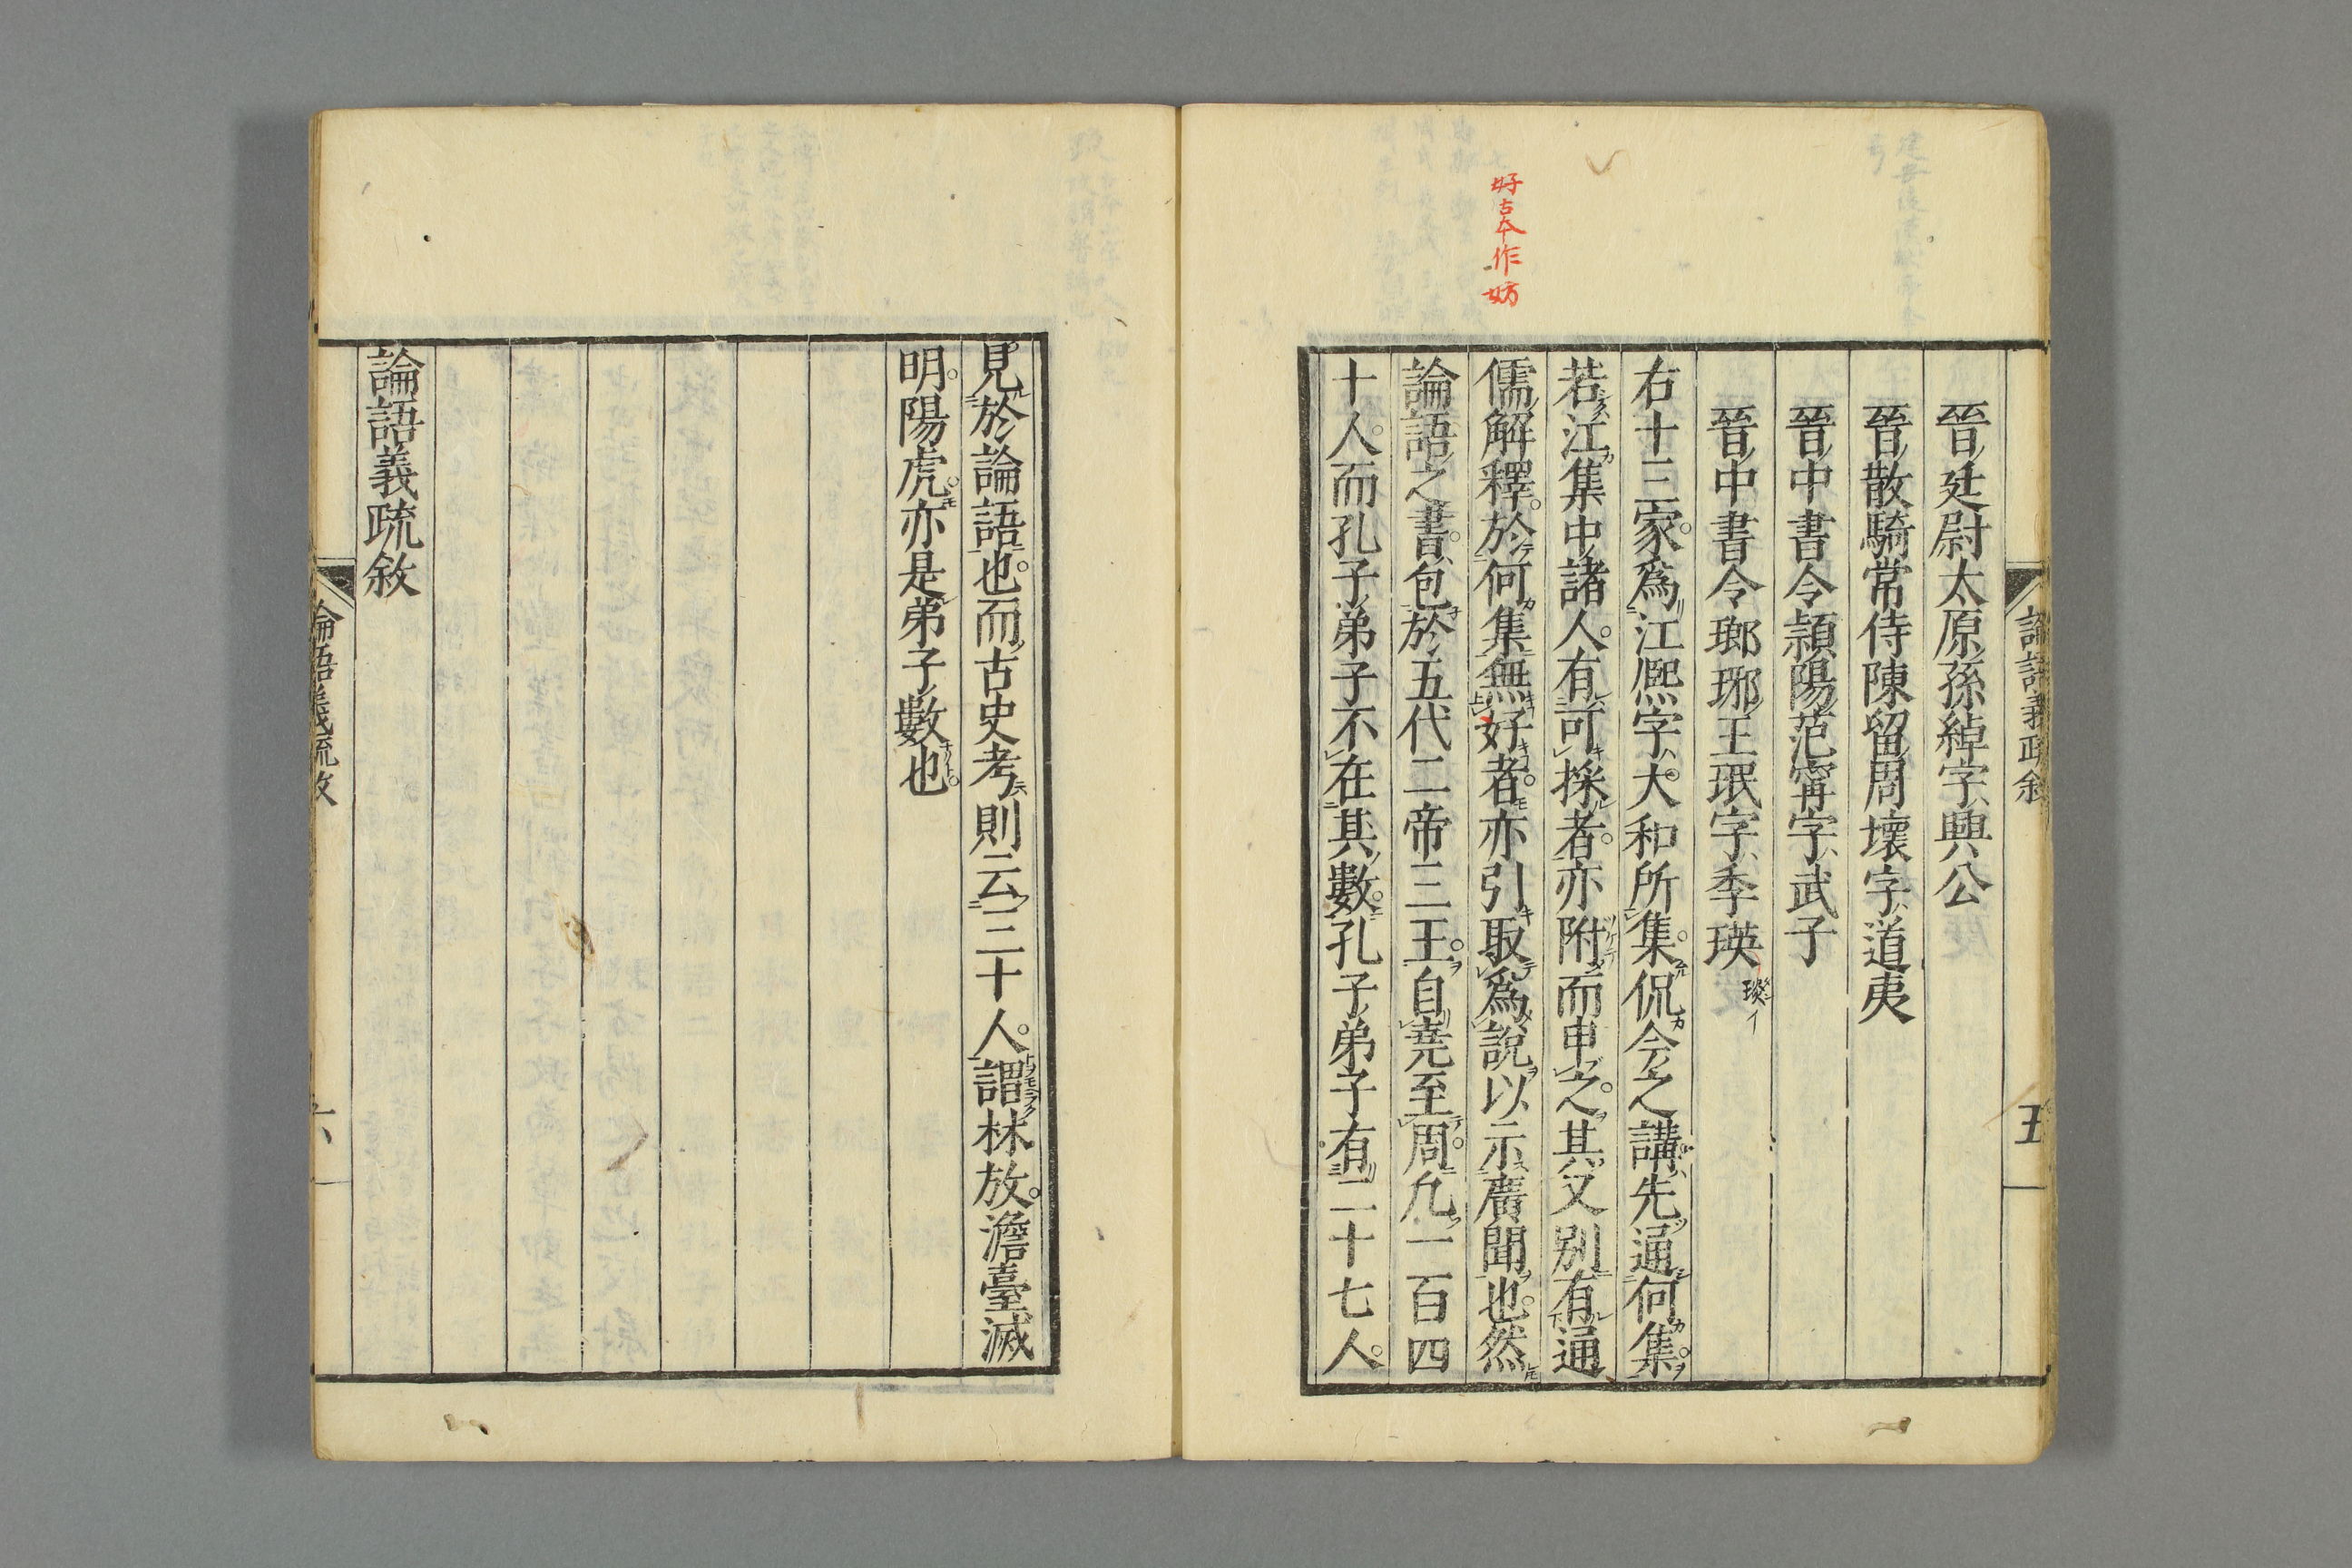 論語義疏敘
五
晉廷尉太原孫綽字興公
晉散騎常侍陳留周壞字道夷
晉中書令頴陽范寗字武子
晉中書令瑯琊王珉字季瑛
右十三家爲江熈字大和所集侃今之講先通何集
若江集中諸人有可採者亦附而申之其又別有通
儒解釋於何集無好者亦引取爲說以示廣聞也然
論語之書包於五代二帝三王自堯至周凢一百四
十人而孔子弟子不在其數孔子弟子有二十七人
好古本作妨
見於論語也而古史考則云三十人謂林放澹臺滅
明陽虎亦是弟子數也
論語義疏敘
論語義疏敘
六